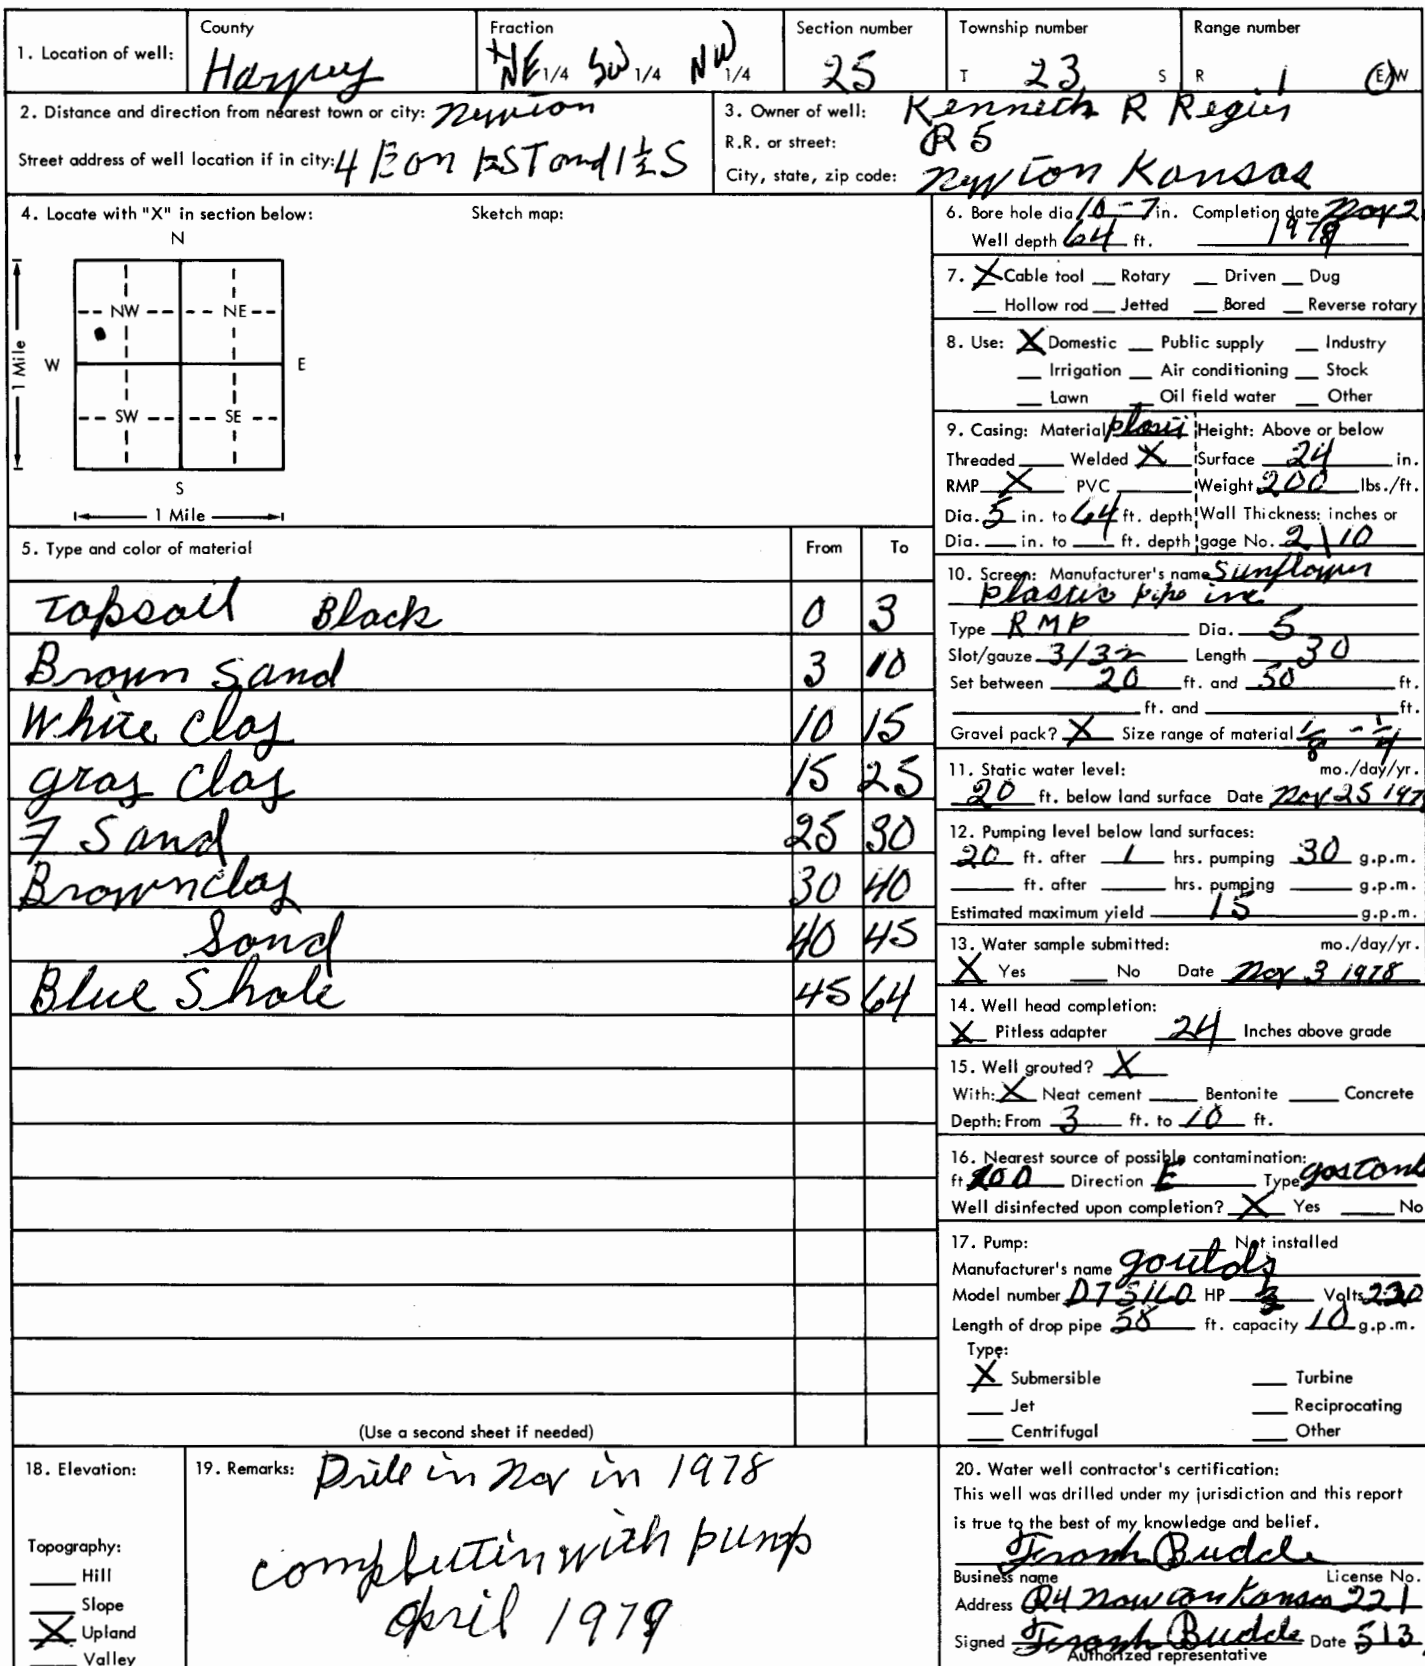 1. Location of well:
County
Harvey
Fraction
NE 1/4 SW 1/4 NW 1/4
Section number
25
Township number
T 23 S
Range number
R 1 E/W
2. Distance and direction from nearest town or city: Newton
Street address of well location if in city: 4 E on 1ST and 1 1/2 S
3. Owner of well: Kenneth R Regier
R.R. or street: R 5
City, state, zip code: Newton Kansas
4. Locate with "X" in section below:
Sketch map:
N
NW NE
W E
1 Mile
SW SE
S
1 Mile
5. Type and color of material From To
Topsoil Black 0 3
Brown Sand 3 10
White Clay 10 15
gray Clay 15 25
F Sand 25 30
Brown clay 30 40
Sand 40 45
Blue Shale 45 64
(Use a second sheet if needed)
6. Bore hole dia. 10-7 in. Completion date Nov 2
Well depth 64 ft. 1978
7. X Cable tool __ Rotary __ Driven __ Dug
__ Hollow rod __ Jetted __ Bored __ Reverse rotary
8. Use: X Domestic __ Public supply __ Industry
__ Irrigation __ Air conditioning __ Stock
__ Lawn __ Oil field water __ Other
9. Casing: Material Height: Above or below
Threaded __ Welded X Surface 24 in.
RMP X PVC __ Weight 200 lbs./ft.
Dia. 5 in. to 64 ft. depth Wall Thickness: inches or
Dia. __ in. to __ ft. depth gage No. 2 10
10. Screen: Manufacturer's name Sunflower
plastic pipe inc
Type RMP Dia. 5
Slot/gauze 3/32 Length 30
Set between 20 ft. and 50 ft.
__ ft. and __ ft.
Gravel pack? X Size range of material 1/8 - 1/4
11. Static water level: mo./day/yr.
20 ft. below land surface Date Nov 25 197
12. Pumping level below land surfaces:
20 ft. after 1 hrs. pumping 30 g.p.m.
__ ft. after __ hrs. pumping __ g.p.m.
Estimated maximum yield 15 g.p.m.
13. Water sample submitted: mo./day/yr.
X Yes __ No Date Nov 3 1978
14. Well head completion:
X Pitless adapter 24 Inches above grade
15. Well grouted? X
With: X Neat cement __ Bentonite __ Concrete
Depth: From 3 ft. to 10 ft.
16. Nearest source of possible contamination:
ft. Direction E Type gastank
Well disinfected upon completion? X Yes __ No
17. Pump: Not installed
Manufacturer's name goulds
Model number HP Volts 230
Length of drop pipe 58 ft. capacity 10 g.p.m.
Type:
X Submersible __ Turbine
__ Jet __ Reciprocating
__ Centrifugal __ Other
18. Elevation:
Topography:
__ Hill
__ Slope
X Upland
__ Valley
19. Remarks: Drill in Nov in 1978
completin with pump
April 1979
20. Water well contractor's certification:
This well was drilled under my jurisdiction and this report
is true to the best of my knowledge and belief.
Frank Budde
Business name License No.
Address R4 Newton Kansas 221
Signed Frank Budde Date 513
Authorized representative